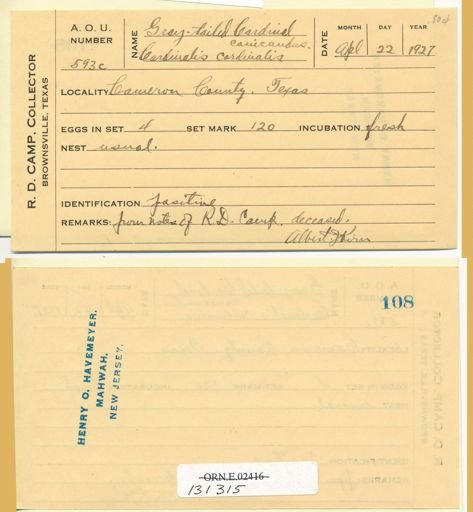 .80d
R. D. CAMP, COLLECTOR
BROWNSVILLE, TEXAS
A. O. U.
NUMBER
593c
NAME
Gray-tailed Cardinal
canicaudus.
Cardinalis cardinalis
DATE
MONTH DAY YEAR
Apl 22 1927
LOCALITY Cameron County, Texas
EGGS IN SET 4 SET MARK 120 INCUBATION fresh
NEST usual.
IDENTIFICATION positive
REMARKS: from notes of R.D. Camp, deceased.
Albert J Kirn
108
HENRY O. HAVEMEYER.
MAHWAH,
NEW JERSEY.
ORN.E.02416
131315